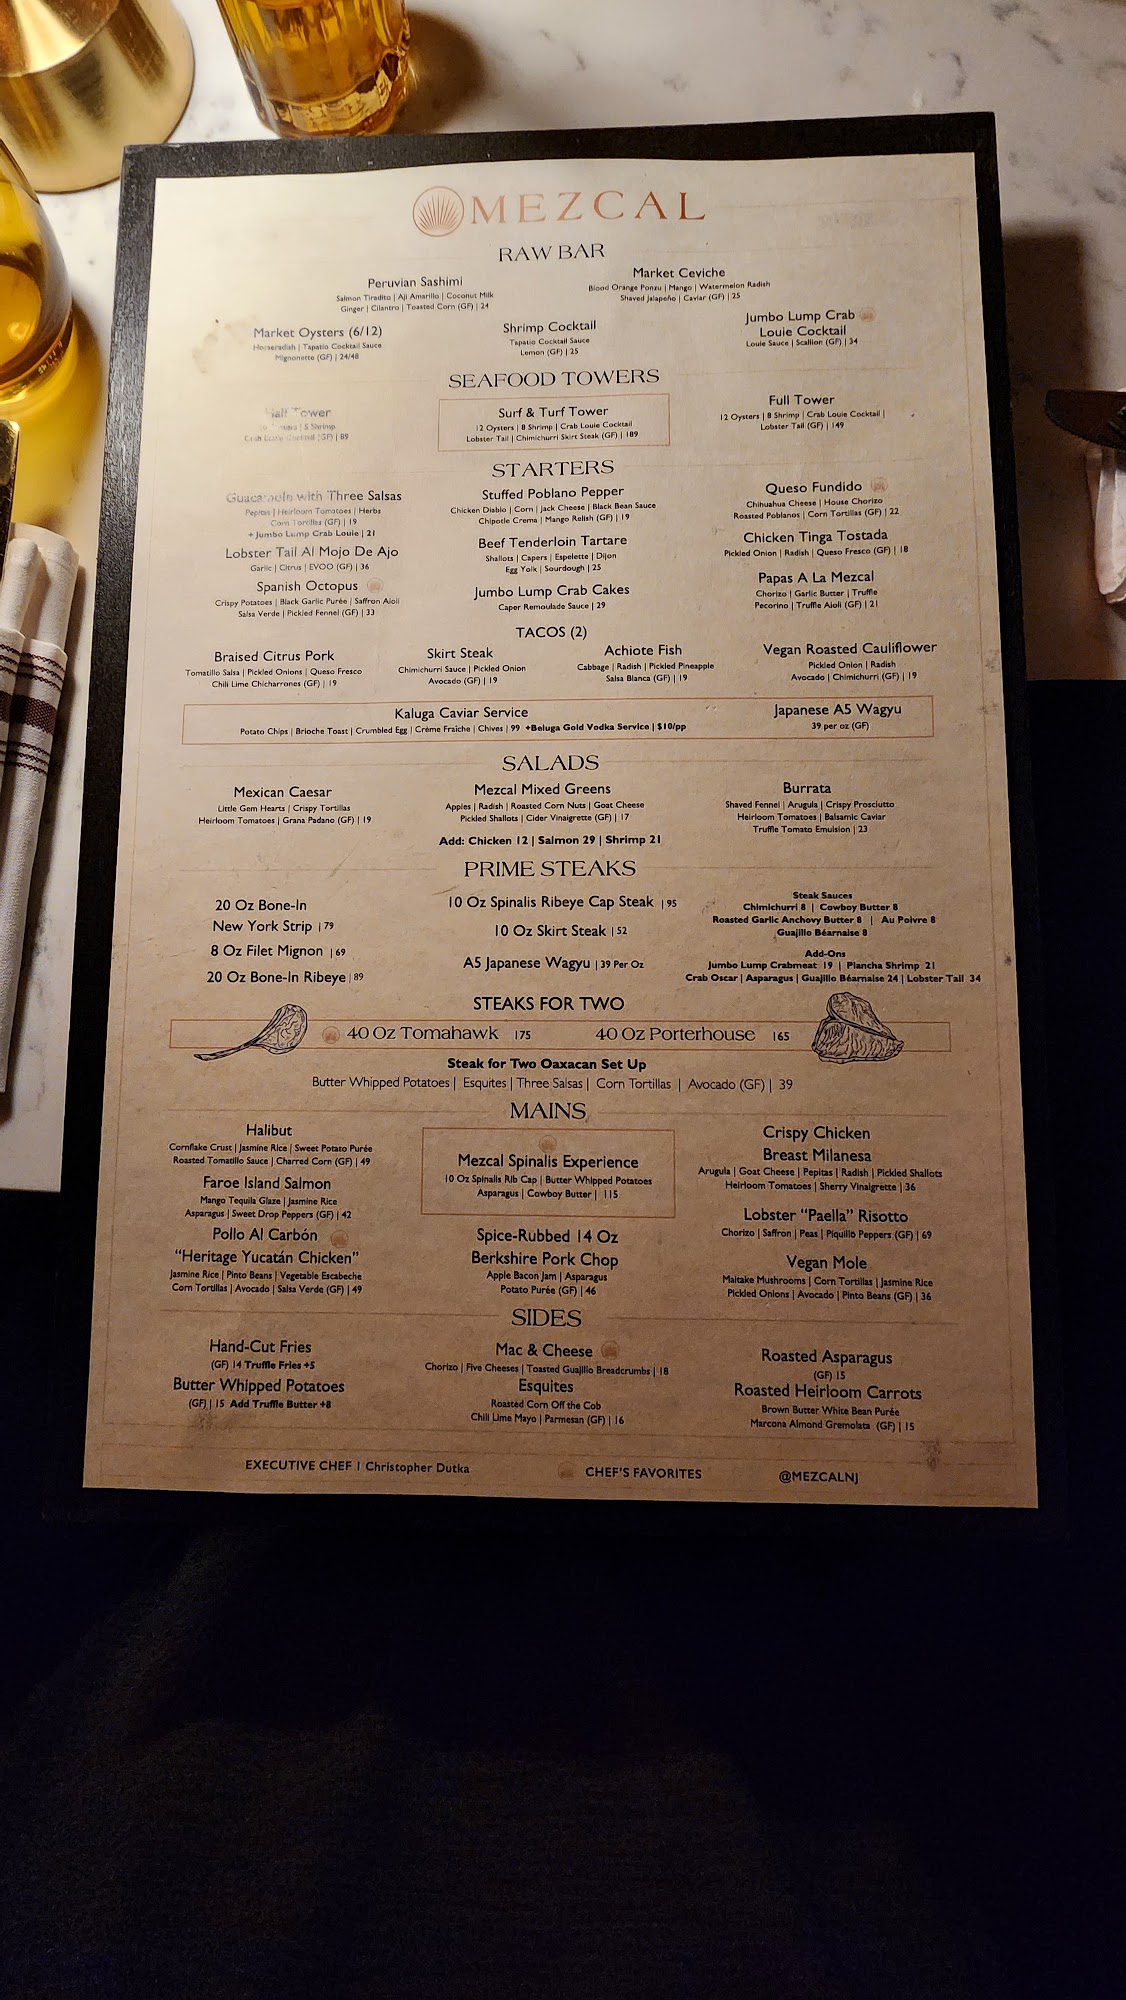 MEZCAL
RAW BAR
Peruvian Sashimi
Salmon Tiradito | Aji Amarillo | Coconut Milk
Ginger | Cilantro | Toasted Corn (GF) | 24
Market Ceviche
Blood Orange Ponzu | Mango | Watermelon Radish
Shaved Jalapeño | Caviar (GF) | 25
Market Oysters (6/12)
Horseradish | Tapatio Cocktail Sauce
Mignonette (GF) | 24/48
Shrimp Cocktail
Tapatio Cocktail Sauce
Lemon (GF) | 25
Jumbo Lump Crab
Louie Cocktail
Louie Sauce | Scallion (GF) | 34
SEAFOOD TOWERS
Half Tower
| 5 Shrimp
Crab Louie Cocktail (GF) | 89
Surf & Turf Tower
12 Oysters | 8 Shrimp | Crab Louie Cocktail
Lobster Tail | Chimichurri Skirt Steak (GF) | 189
Full Tower
12 Oysters | 8 Shrimp | Crab Louie Cocktail |
Lobster Tail (GF) | 149
STARTERS
Guacamole with Three Salsas
Pepitas | Heirloom Tomatoes | Herbs
Corn Tortillas (GF) | 19
+ Jumbo Lump Crab Louie | 21
Lobster Tail Al Mojo De Ajo
Garlic | Citrus | EVOO (GF) | 36
Spanish Octopus
Crispy Potatoes | Black Garlic Purée | Saffron Aioli
Salsa Verde | Pickled Fennel (GF) | 33
Stuffed Poblano Pepper
Chicken Diablo | Corn | Jack Cheese | Black Bean Sauce
Chipotle Crema | Mango Relish (GF) | 19
Beef Tenderloin Tartare
Shallots | Capers | Espelette | Dijon
Egg Yolk | Sourdough | 25
Jumbo Lump Crab Cakes
Caper Remoulade Sauce | 29
Queso Fundido
Chihuahua Cheese | House Chorizo
Roasted Poblanos | Corn Tortillas (GF) | 22
Chicken Tinga Tostada
Pickled Onion | Radish | Queso Fresco (GF) | 18
Papas A La Mezcal
Chorizo | Garlic Butter | Truffle
Pecorino | Truffle Aioli (GF) | 21
TACOS (2)
Braised Citrus Pork
Tomatillo Salsa | Pickled Onions | Queso Fresco
Chili Lime Chicharrones (GF) | 19
Skirt Steak
Chimichurri Sauce | Pickled Onion
Avocado (GF) | 19
Achiote Fish
Cabbage | Radish | Pickled Pineapple
Salsa Blanca (GF) | 19
Vegan Roasted Cauliflower
Pickled Onion | Radish
Avocado | Chimichurri (GF) | 19
Kaluga Caviar Service
Potato Chips | Brioche Toast | Crumbled Egg | Crème Fraîche | Chives | 99 +Beluga Gold Vodka Service | $10/pp
Japanese A5 Wagyu
39 per oz (GF)
SALADS
Mexican Caesar
Little Gem Hearts | Crispy Tortillas
Heirloom Tomatoes | Grana Padano (GF) | 19
Mezcal Mixed Greens
Apples | Radish | Roasted Corn Nuts | Goat Cheese
Pickled Shallots | Cider Vinaigrette (GF) | 17
Burrata
Shaved Fennel | Arugula | Crispy Prosciutto
Heirloom Tomatoes | Balsamic Caviar
Truffle Tomato Emulsion | 23
Add: Chicken 12 | Salmon 29 | Shrimp 21
PRIME STEAKS
20 Oz Bone-In
New York Strip | 79
8 Oz Filet Mignon | 69
20 Oz Bone-In Ribeye | 89
10 Oz Spinalis Ribeye Cap Steak | 95
10 Oz Skirt Steak | 52
A5 Japanese Wagyu | 39 Per Oz
Steak Sauces
Chimichurri 8 | Cowboy Butter 8
Roasted Garlic Anchovy Butter 8 | Au Poivre 8
Guajillo Béarnaise 8
Add-Ons
Jumbo Lump Crabmeat 19 | Plancha Shrimp 21
Crab Oscar | Asparagus | Guajillo Béarnaise 24 | Lobster Tail 34
STEAKS FOR TWO
40 Oz Tomahawk 175
40 Oz Porterhouse 165
Steak for Two Oaxacan Set Up
Butter Whipped Potatoes | Esquites | Three Salsas | Corn Tortillas | Avocado (GF) | 39
MAINS
Halibut
Cornflake Crust | Jasmine Rice | Sweet Potato Purée
Roasted Tomatillo Sauce | Charred Corn (GF) | 49
Faroe Island Salmon
Mango Tequila Glaze | Jasmine Rice
Asparagus | Sweet Drop Peppers (GF) | 42
Pollo Al Carbón
"Heritage Yucatán Chicken"
Jasmine Rice | Pinto Beans | Vegetable Escabeche
Corn Tortillas | Avocado | Salsa Verde (GF) | 49
Mezcal Spinalis Experience
10 Oz Spinalis Rib Cap | Butter Whipped Potatoes
Asparagus | Cowboy Butter | 115
Spice-Rubbed 14 Oz
Berkshire Pork Chop
Apple Bacon Jam | Asparagus
Potato Purée (GF) | 46
Crispy Chicken
Breast Milanesa
Arugula | Goat Cheese | Pepitas | Radish | Pickled Shallots
Heirloom Tomatoes | Sherry Vinaigrette | 36
Lobster "Paella" Risotto
Chorizo | Saffron | Peas | Piquillo Peppers (GF) | 69
Vegan Mole
Maitake Mushrooms | Corn Tortillas | Jasmine Rice
Pickled Onions | Avocado | Pinto Beans (GF) | 36
SIDES
Hand-Cut Fries
(GF) 14 Truffle Fries +5
Butter Whipped Potatoes
(GF) | 15 Add Truffle Butter +8
Mac & Cheese
Chorizo | Five Cheeses | Toasted Guajillo Breadcrumbs | 18
Esquites
Roasted Corn Off the Cob
Chili Lime Mayo | Parmesan (GF) | 16
Roasted Asparagus
(GF) 15
Roasted Heirloom Carrots
Brown Butter White Bean Purée
Marcona Almond Gremolata (GF) | 15
EXECUTIVE CHEF | Christopher Dutka
CHEF'S FAVORITES
@MEZCALNJ